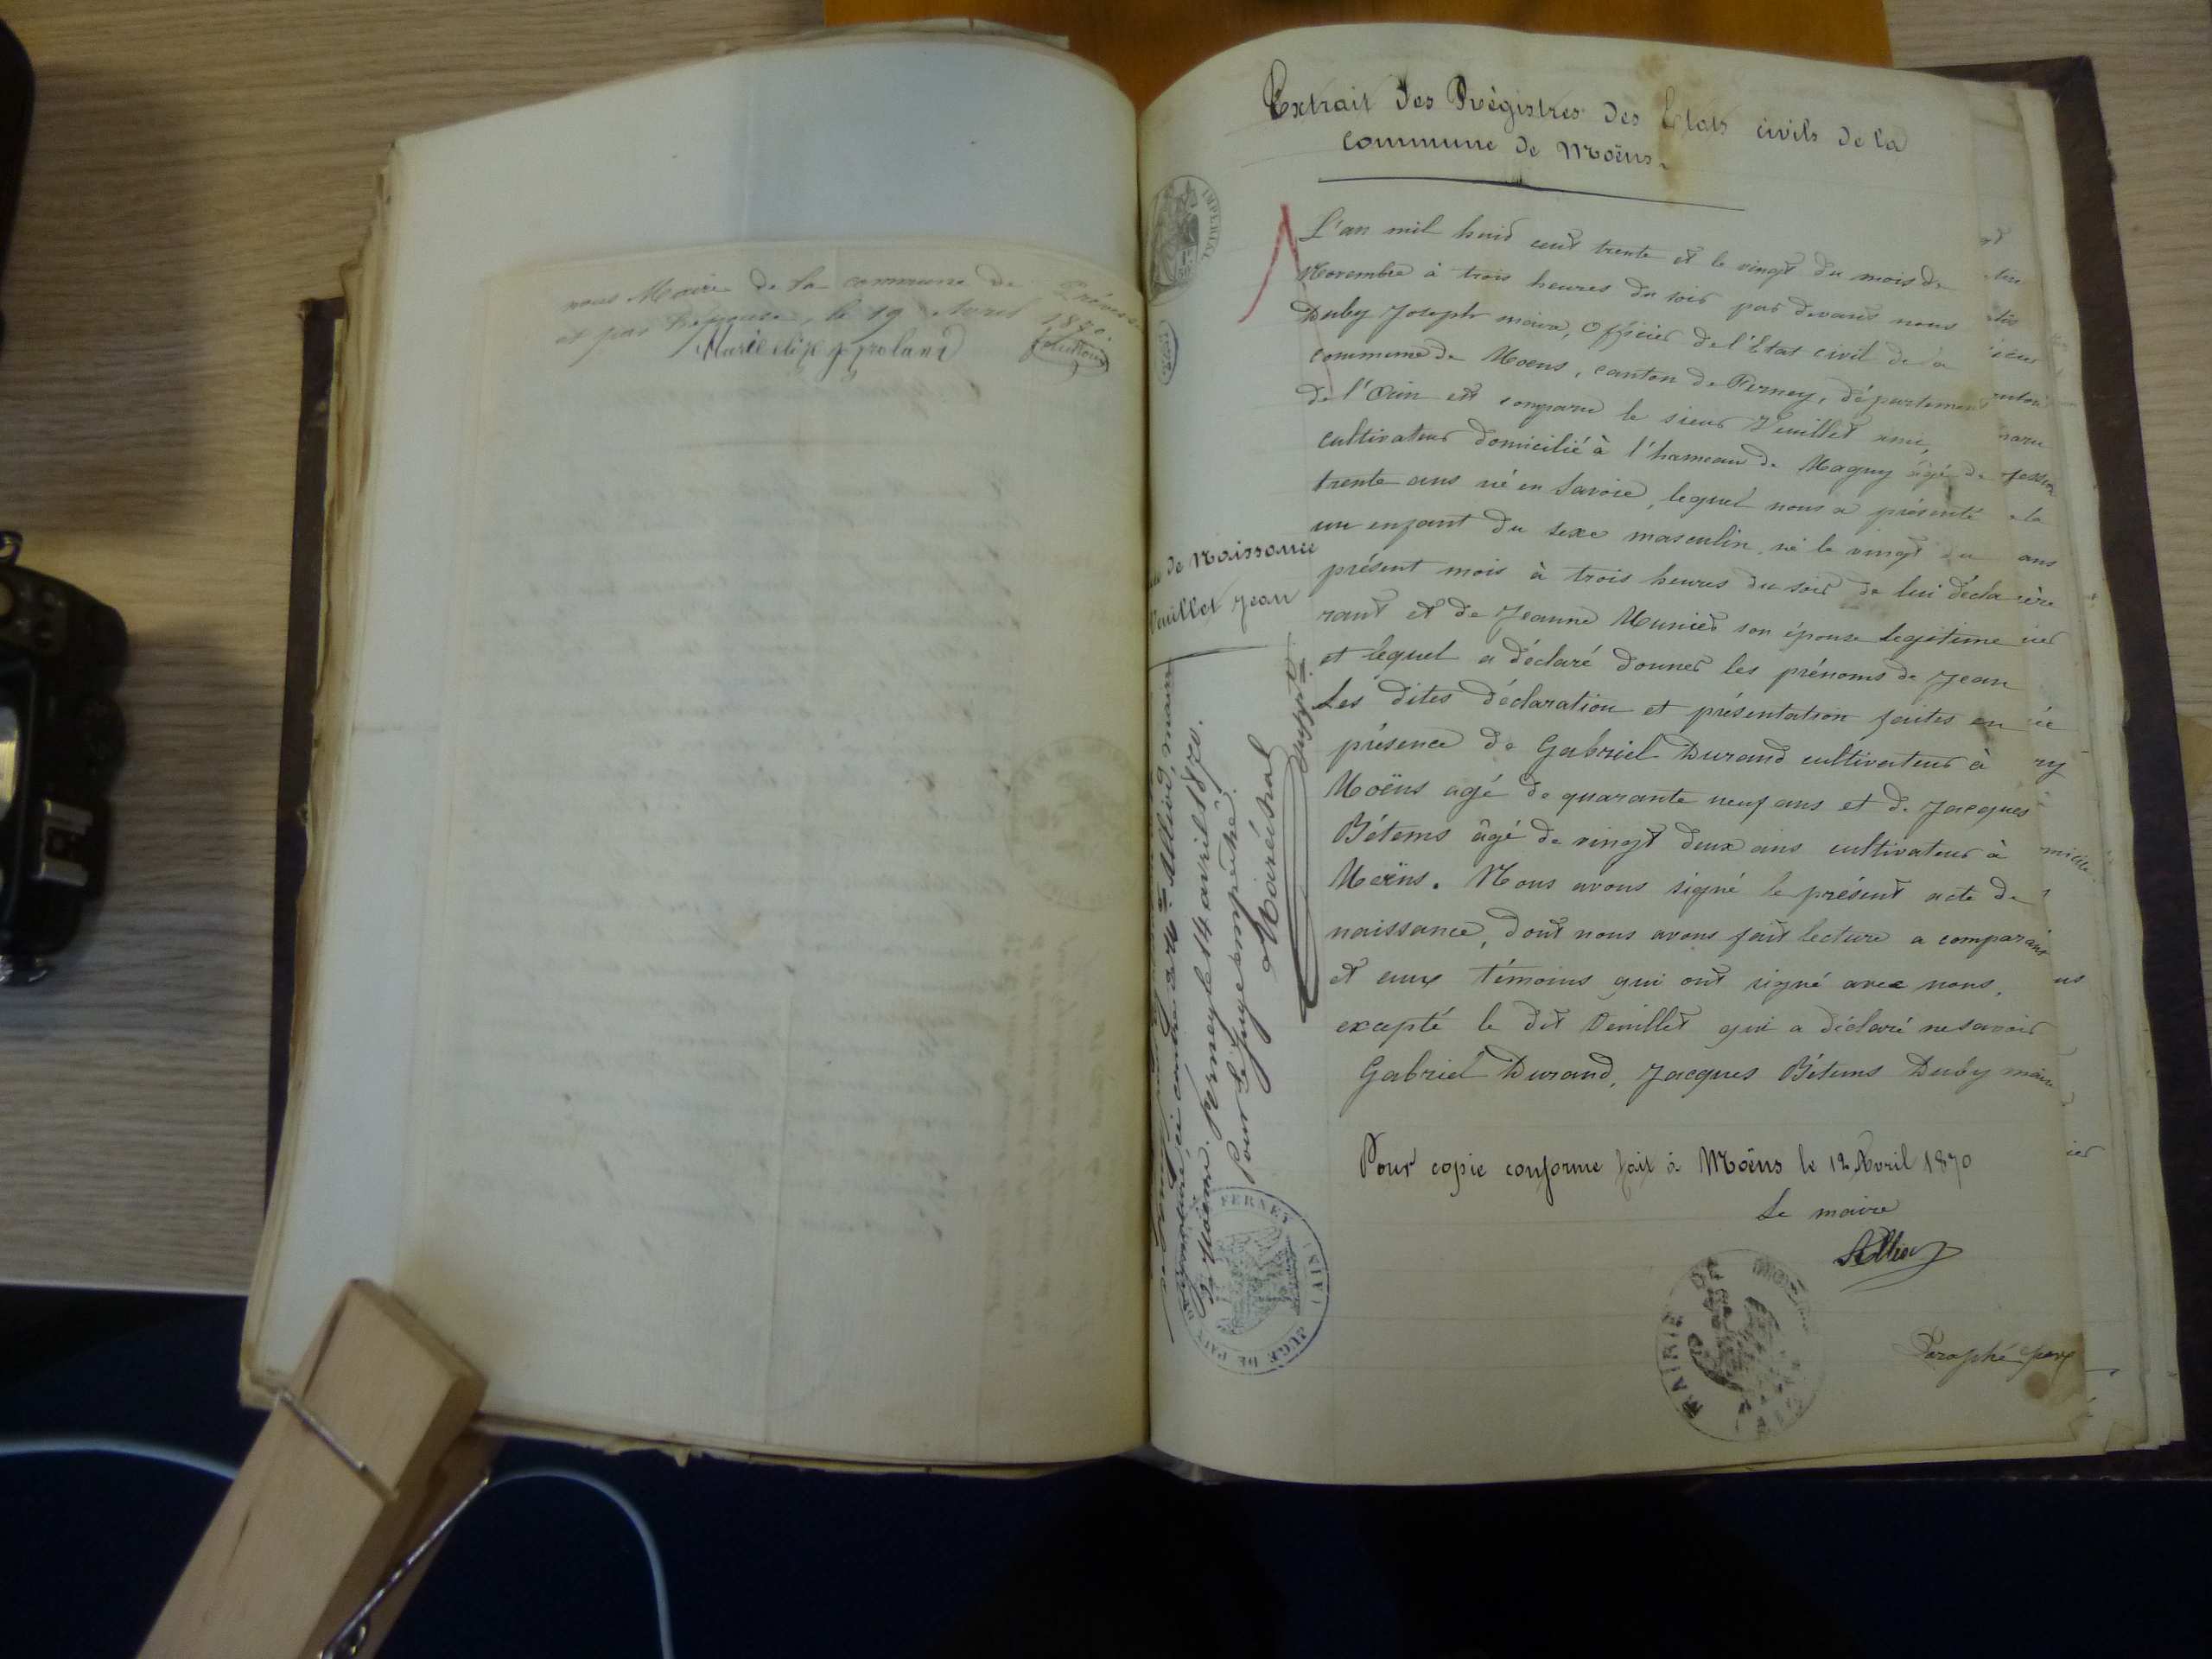 nous Maire de la commune de Prévessin
et par l'épouse, le 19 Avril 1870.
Extrait des Régistres des Etats civils de la
commune de Moëns.
IMPERIAL
L'an mil huit cent trente et le vingt du mois de
Novembre à trois heures du soir par devant nous
Duby Joseph maire, Officier de l'Etat civil de la
commune de Moens, canton de Ferney, département
de l'Ain est comparu le sieur Veuillet aimé,
cultivateur domicilié à l'hameau de Magny âgé de
trente ans né en Savoie, lequel nous a présenté
un enfant du sexe masculin, né le vingt du
présent mois à trois heures du soir de lui décla
rant et de Jeanne Munier son épouse legitime
et lequel a déclaré donner les prénoms de Jean
Les dites déclaration et présentation faites en
présence de Gabriel Durand cultivateur à
Moëns agé de quarante neuf ans et de Jacques
Bétems âgé de vingt deux ans cultivateur à
Moëns. Nous avons signé le présent acte de
naissance, dont nous avons fait lecture a comparant
et eux témoins qui ont signé avec nous,
excepté le dit Veuillet qui a déclaré ne savoir
Gabriel Durand, Jacques Bétems Duby maire
Pour copie conforme fait à Moëns le 12 Avril 1870
Le maire
MAIRIE DE MOENS
Paraphé par
de Naissance
Veuillet Jean
signature, ci contre de Mr. Allliod, maire
de Moëns. Ferney le 14 avril 1870.
Pour le juge empêché.
Maréchal
suppt.
JUGE DE PAIX FERNEY (AIN)